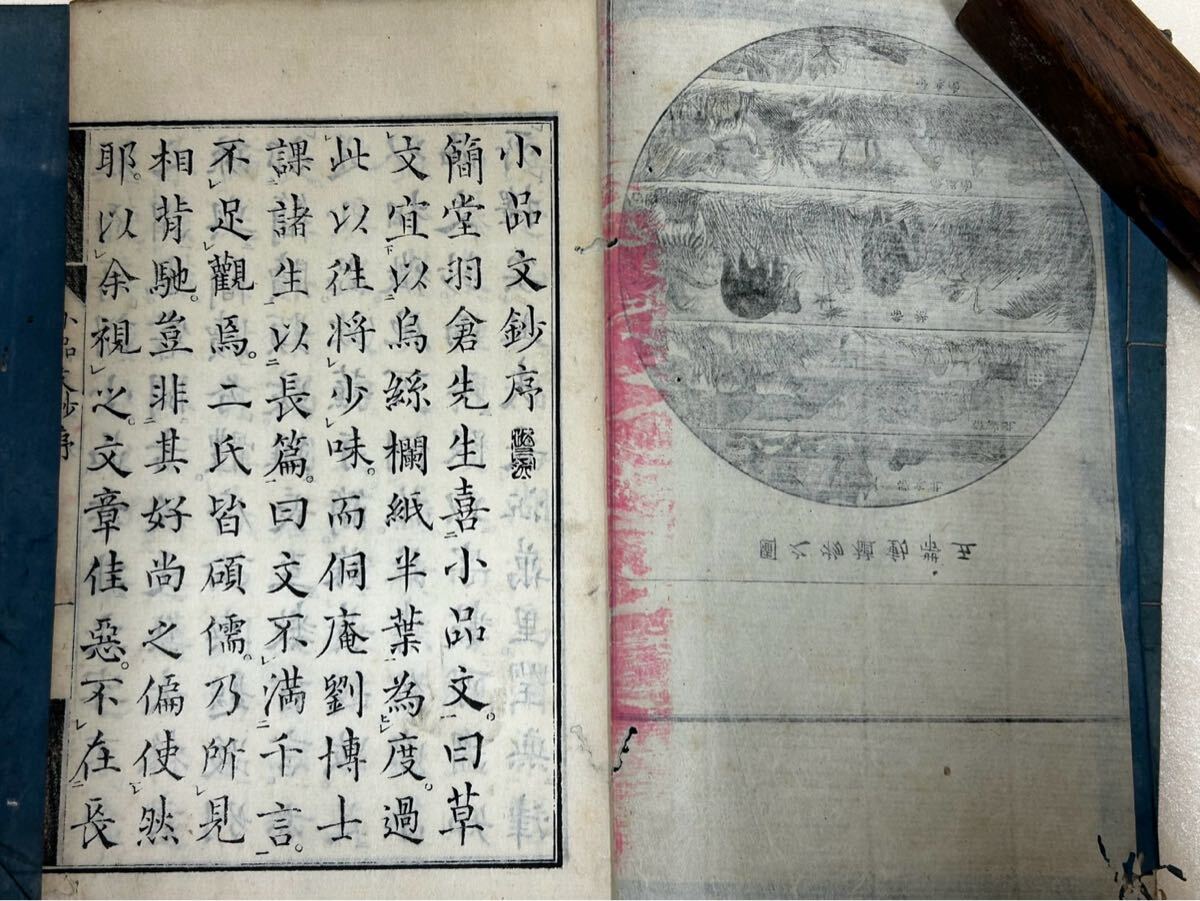 小品文鈔序
簡堂羽倉先生喜小品文。曰草
文宜以烏絲欄紙半葉為度。過
此以徃將少味。而侗庵劉博士
課諸生以長篇。曰文不滿千言。
不足觀焉。二氏皆碩儒。乃所見
相背馳。豈非其好尚之偏使然
耶。以余視之。文章佳惡。不在長
小品文鈔序
一